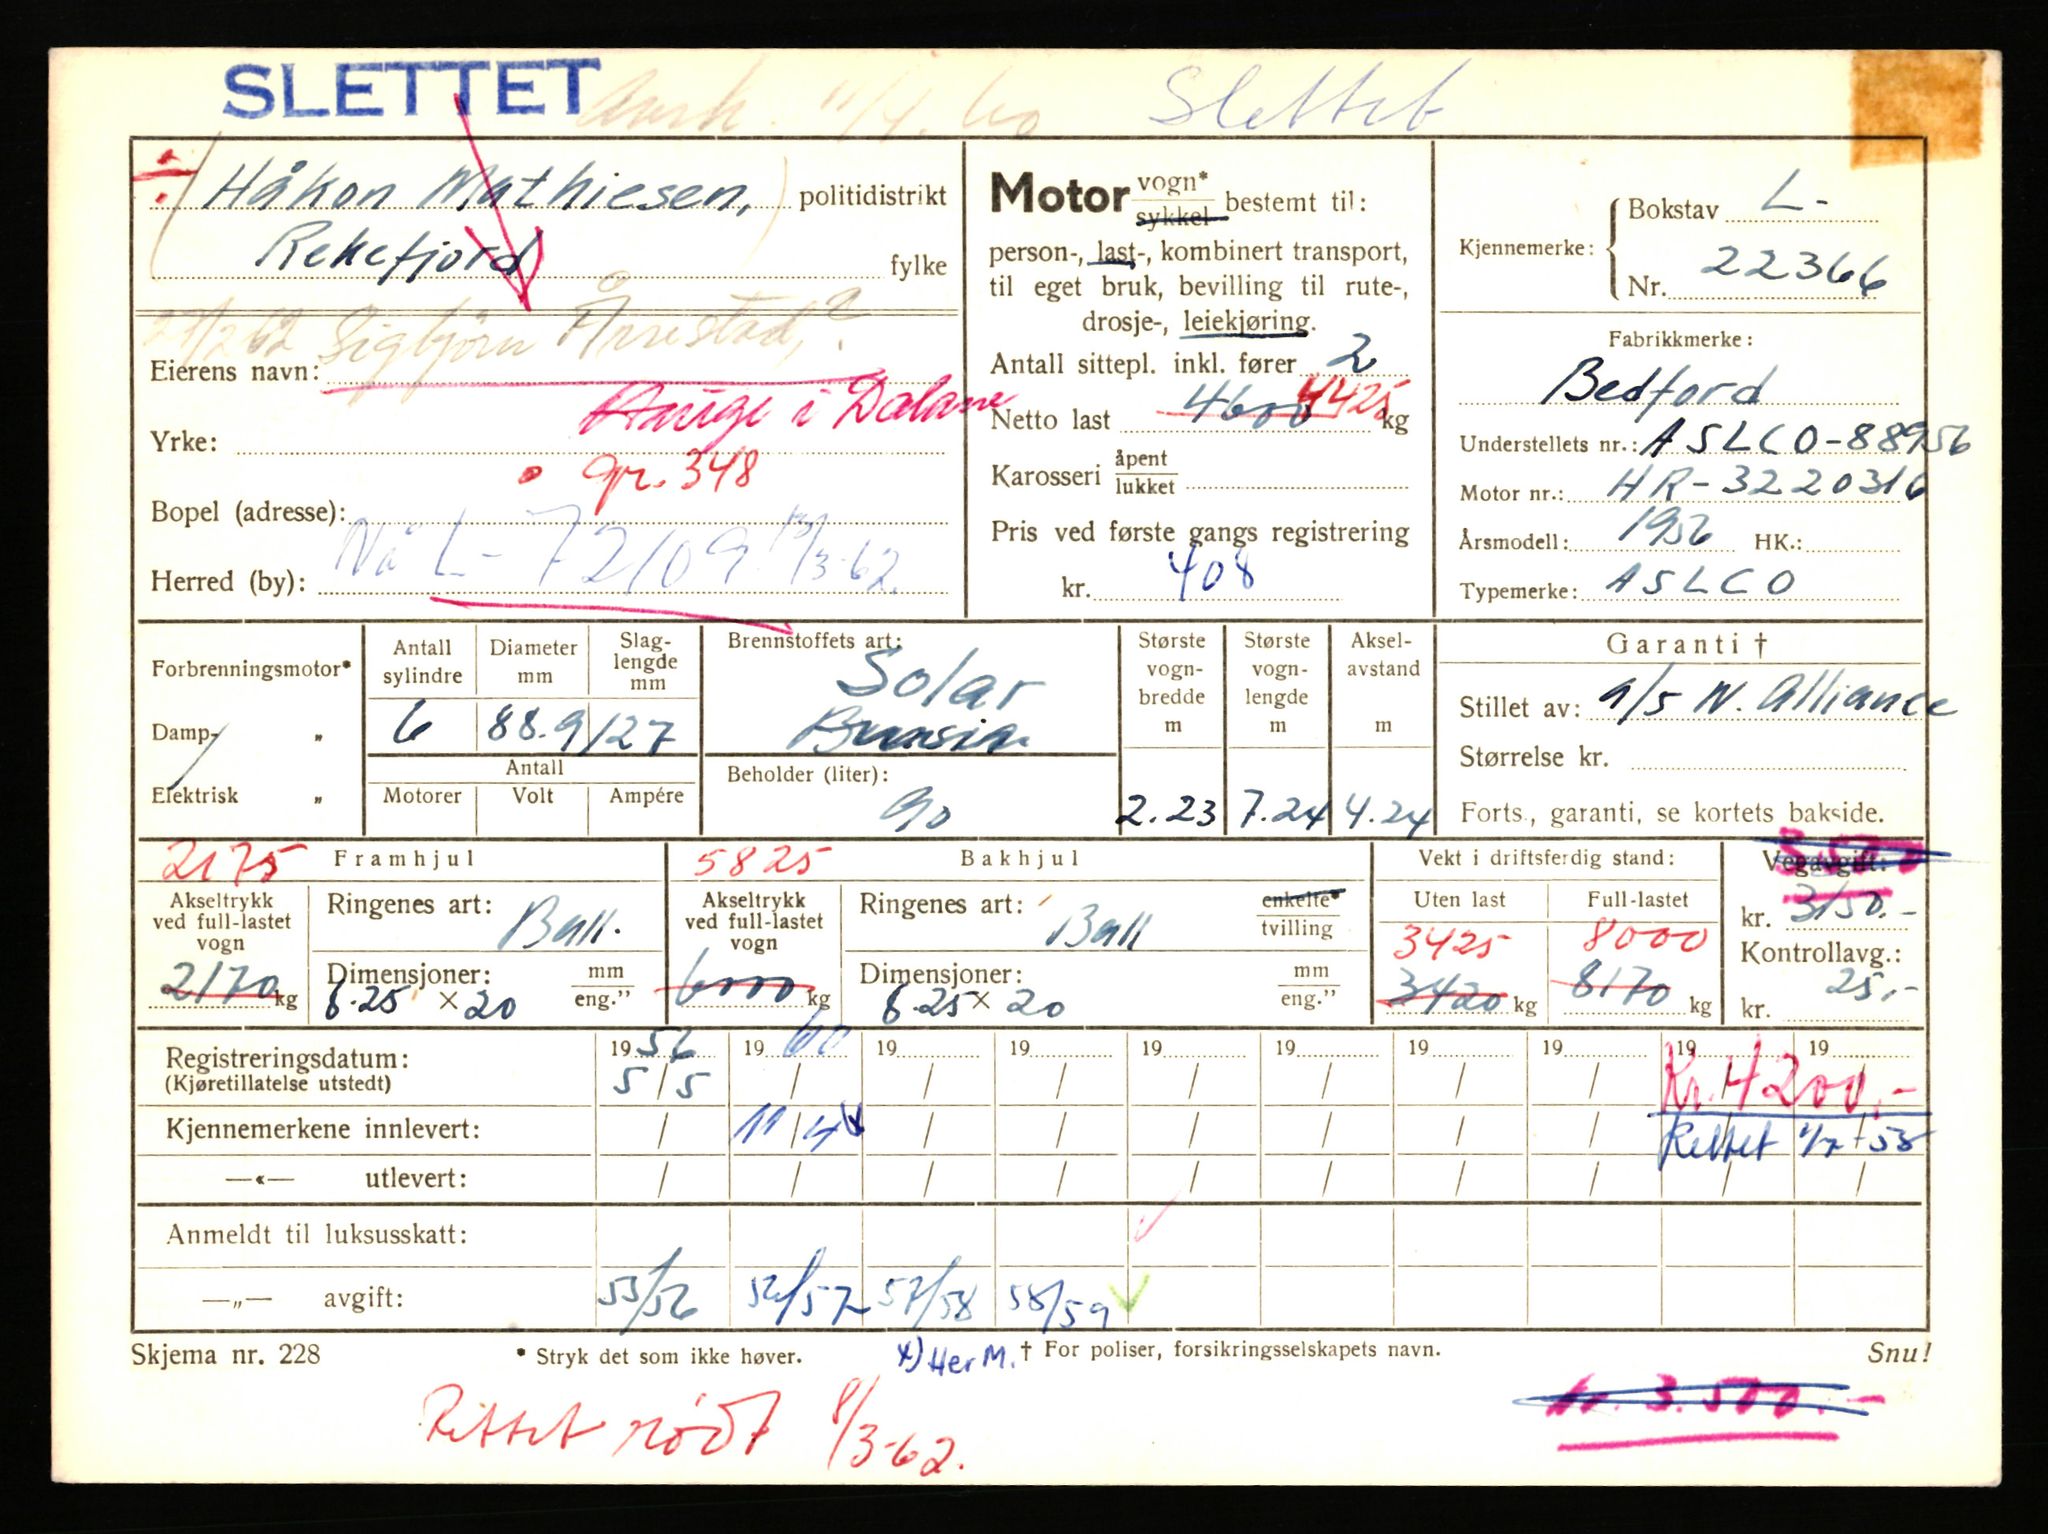 SLETTET 11/4.60 Slettet
÷ (Håkon Mathiesen,) politidistrikt
Rekefjord fylke
27/2 62 Sigbjørn Årrestad,
Eierens navn:
Hauge i Dalane
Yrke:
gr. 348
Bopel (adresse):
Nå L-72109 13/3-62.
Herred (by):
Motor vogn* sykkel bestemt til:
person-, last-, kombinert transport,
til eget bruk, bevilling til rute-,
drosje-, leiekjøring.
Antall sittepl. inkl. fører 2
Netto last 4600 4425 kg
Karosseri åpent lukket
Pris ved første gangs registrering
kr. 408
Kjennemerke: Bokstav L-
Nr. 22366
Fabrikkmerke:
Bedford
Understellets nr.: ASLCO-88956
Motor nr.: HR-3220316
Årsmodell: 1956 HK.:
Typemerke: ASLCO
Forbrenningsmotor*
Damp- „
Elektrisk „
Antall sylindre
6
Diameter mm
88.9
Slaglengde mm
127
Antall
Motorer Volt Ampére
Brennstoffets art:
Solar
Bensin
Beholder (liter):
90
Største vognbredde m
2.23
Største vognlengde m
7.24
Akselavstand m
4.24
Garanti †
Stillet av: A/S N. Alliance
Størrelse kr.
Forts., garanti, se kortets bakside.
2175 Framhjul
Akseltrykk ved full-lastet vogn
2170 kg
Ringenes art: Ball.
Dimensjoner: mm eng.”
8.25 × 20
5825 Bakhjul
Akseltrykk ved full-lastet vogn
6000 kg
Ringenes art: Ball enkelte* tvilling
Dimensjoner: mm eng.”
8.25 × 20
Vekt i driftsferdig stand:
Uten last Full-lastet
3425 8000
3420 kg 8170 kg
Vegavgift:
kr. 3150.-
Kontrollavg.:
kr. 25,-
Registreringsdatum: 1956 1960 19 19 19 19 19 19 19 19
(Kjøretillatelse utstedt) 5/5 / / / / / / / Kr. 4200,-
Kjennemerkene innlevert: / 11/4 / / / / / / Rettet 1/7-58
—«— utlevert: / / / / / / / / / /
Anmeldt til luksusskatt:
—„— avgift: 55/56 56/57 57/58 58/59
Skjema nr. 228 * Stryk det som ikke høver. x) Her M. † For poliser, forsikringsselskapets navn. Snu!
kr. 3.500.-
Rettet rødt 8/3-62.